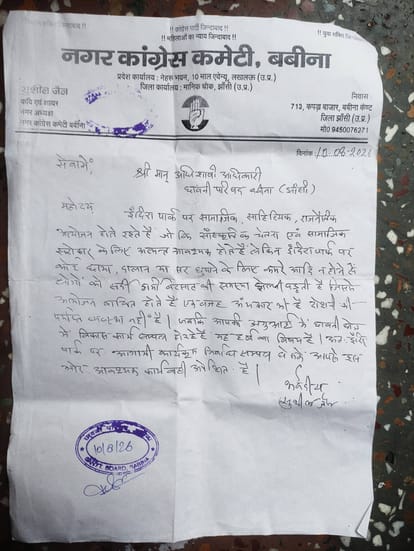 ।। कांग्रेस पार्टी जिन्दाबाद ।।
।। महिलाओं का न्याय जिन्दाबाद ।।
।। युवा शक्ति जिन्दाबाद ।।
नगर कांग्रेस कमेटी, बबीना
प्रदेश कार्यालय : नेहरू भवन, 10 माल एवेन्यु, लखनऊ (उ.प्र.)
जिला कार्यालय : मानिक चौक, झाँसी (उ.प्र.)
सुशील जैन
कवि एवं शायर
नगर अध्यक्ष
नगर कांग्रेस कमेटी बबीना
निवास
713, कपड़ा बाजार, बबीना कैण्ट
जिला झाँसी (उ.प्र.)
मो0 9450076271
दिनांक 10.08.202
सेवा में
श्री मान् अधिशासी अधिकारी
छावनी परिषद बबीना (झाँसी)
महोदय
इंदिरा पार्क पर सामाजिक, साहित्यिक, राजनैतिक
आयोजन होते रहते हैं जो कि साँस्कृतिक चेतना एवं सामाजिक
सरोकार के लिए अत्यन्त आवश्यक होते हैं लेकिन इंदिरा पार्क पर
कोई छाया, दालान या सर छुपाने के लिए कमरे आदि न होने से
लोगों को बड़ी भारी की समस्या झेलनी पड़ती है जिससे
आयोजन बाधित होते हैं एवं वहाँ अंधकार भी है रोशनी की
पर्याप्त व्यवस्था नहीं है । जबकि आपकी अगुआई में छावनी क्षेत्र
में विकास कार्य हो रहे हैं यह हर्ष का विषय है । अतः इंदिरा
पार्क पर आगामी कार्यक्रम सम्पन्न हो सके आपके
और आवश्यक कार्यवाही अपेक्षित है ।
भवदीय
सुशील जैन
10/8/26
CANTT BOARD, BABINA